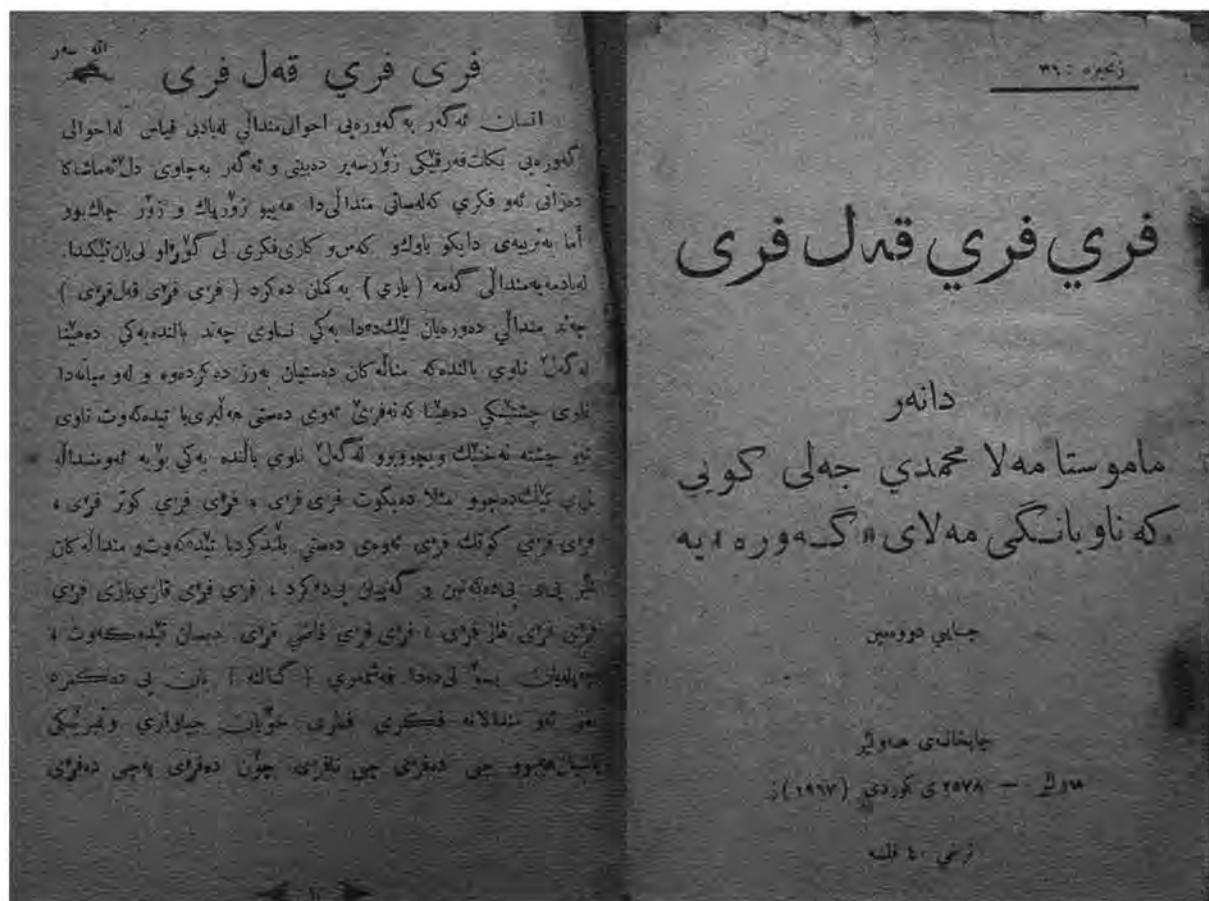 زنجیره : ٣٦
فري فري قەل فری
دانەر
ماموستا مەلا محمدي جەلی کویی
کە ناوبانگی مەلای «گەورە» یە
چاپی دووەمین
چاپخانەی هەولێر
هەولێر — ٢٥٧٨ ی کوردی (١٩٦٧) ز
نرخی ٤٠ فلسە
فری فري قەل فری
انسان ئەگەر بەگەورەیی احوالی منداڵي لەبادبی قیاس لەاحوالی
گەورەیی بکات فەرقێکی زۆرسەیر دەبینی و ئەگەر بەچاوی دڵ تەماشاکا
دەزانی ئەو فکري کەلەساتی منداڵی دا هەیبو زۆرپاك و زۆر چاك بوو
أما بەتربیەی دایکو باوك و کەس و کاری فکری لی گۆڕاو لی یان تێکدا.
لەبادمە بەمنداڵی گەمە ( یاري ) یەکمان دەکرد ( فڕی فڕی قەل فڕی )
چەند منداڵي دەورەیان لێك دەدا یەکي نـاوی چەند بالندەیەکي دەهێنا
لەگەڵ ناوي بالندەکە مناڵەکان دەستیان بەرز دەکردەوە و لەو میانەدا
ناوی چشتێکي دەهێنا کە نەفڕێ ئەوی دەستی هەڵبری یا تیدەکەوت ناوی
ئەو چشتە نەختێك وەچووبوو لەگەڵ ناوي باڵندە یەکی بۆیە ئەومنداڵە
لی تێك دەچوو مثلا دەیگوت فڕی فڕی ، فڕی فڕي کوتر فڕی ،
فڕی فڕي کوتك فڕی ئەوەی دەستی بلندکردبا تێدەکەوت و منداڵەکان
پێی پێدەکەنین و گەپیان پێ دەکرد ، فڕي فڕی قاری بازی فڕي
فڕی فڕی قاز فڕی ، فڕی فڕي قاضی فڕی دیسان تێدەکەوت ،
لی دەدا قەشمەري ( گالتە ) یان پی دەکـرە
ئەو مندالانە فـکری فطری خۆیان جیاوازي
هەبوو چی دەفڕی چی نافڕی چۆن دەفڕی بەچی دەفڕی